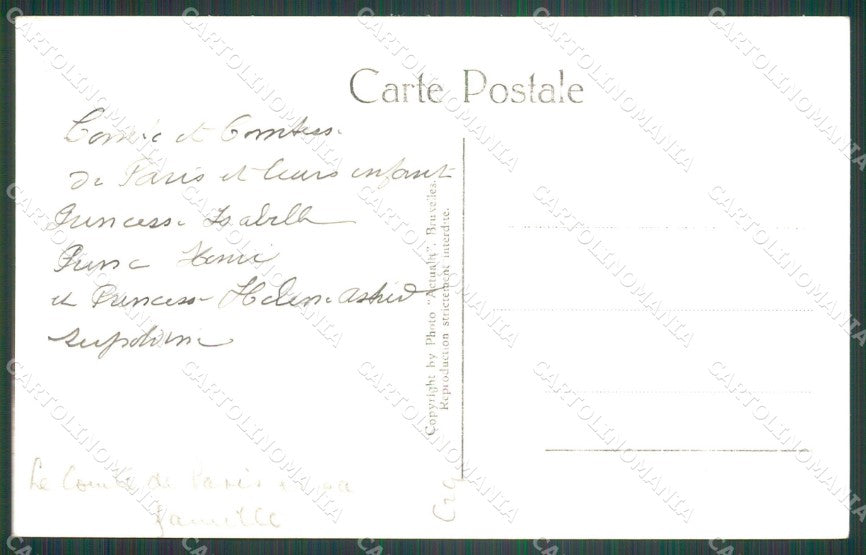 Carte Postale
Comte et Comtesse
de Paris et leurs enfant
Princesse Isabelle
Prince Henri
et Princesse Helene Astrid
Copyright by Photo "Actualit", Bruxelles.
Reproduction strictement interdite.
Le Comte de Paris et sa
famille
CARTOLINOMANIA